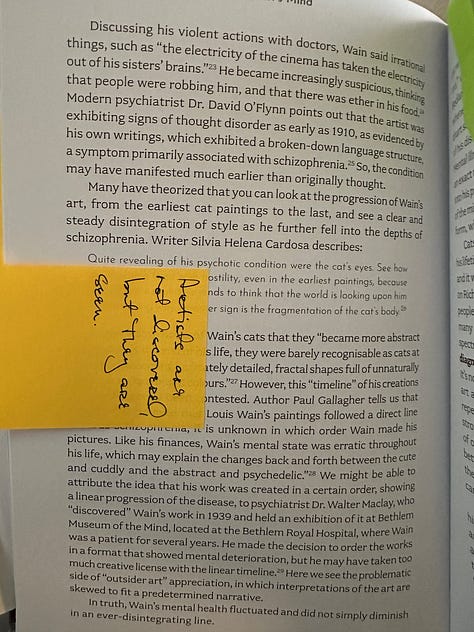 Mind
Discussing his violent actions with doctors, Wain said irrational
things, such as “the electricity of the cinema has taken the electricity
out of his sisters’ brains.”23 He became increasingly suspicious, thinking
that people were robbing him, and that there was ether in his food.24
Modern psychiatrist Dr. David O’Flynn points out that the artist was
exhibiting signs of thought disorder as early as 1910, as evidenced by
his own writings, which exhibited a broken-down language structure,
a symptom primarily associated with schizophrenia.25 So, the condition
may have manifested much earlier than originally thought.
Many have theorized that you can look at the progression of Wain’s
art, from the earliest cat paintings to the last, and see a clear and
steady disintegration of style as he further fell into the depths of
schizophrenia. Writer Silvia Helena Cardosa describes:
Quite revealing of his psychotic condition were the cat’s eyes. See how
ostility, even in the earliest paintings, because
nds to think that the world is looking upon him
er sign is the fragmentation of the cat’s body.26
Wain’s cats that they “became more abstract
s life, they were barely recognisable as cats at
ately detailed, fractal shapes full of unnaturally
ours.”27 However, this “timeline” of his creations
ontested. Author Paul Gallagher tells us that
Louis Wain’s paintings followed a direct line
it is unknown in which order Wain made his
pictures. Like his finances, Wain’s mental state was erratic throughout
his life, which may explain the changes back and forth between the cute
and cuddly and the abstract and psychedelic.”28 We might be able to
attribute the idea that his work was created in a certain order, showing
a linear progression of the disease, to psychiatrist Dr. Walter Maclay, who
“discovered” Wain’s work in 1939 and held an exhibition of it at Bethlem
Museum of the Mind, located at the Bethlem Royal Hospital, where Wain
was a patient for several years. He made the decision to order the works
in a format that showed mental deterioration, but he may have taken too
much creative license with the linear timeline.29 Here we see the problematic
side of “outsider art” appreciation, in which interpretations of the art are
skewed to fit a predetermined narrative.
In truth, Wain’s mental health fluctuated and did not simply diminish
in an ever-disintegrating line.
Artists are
not discovered,
but they are
seen.